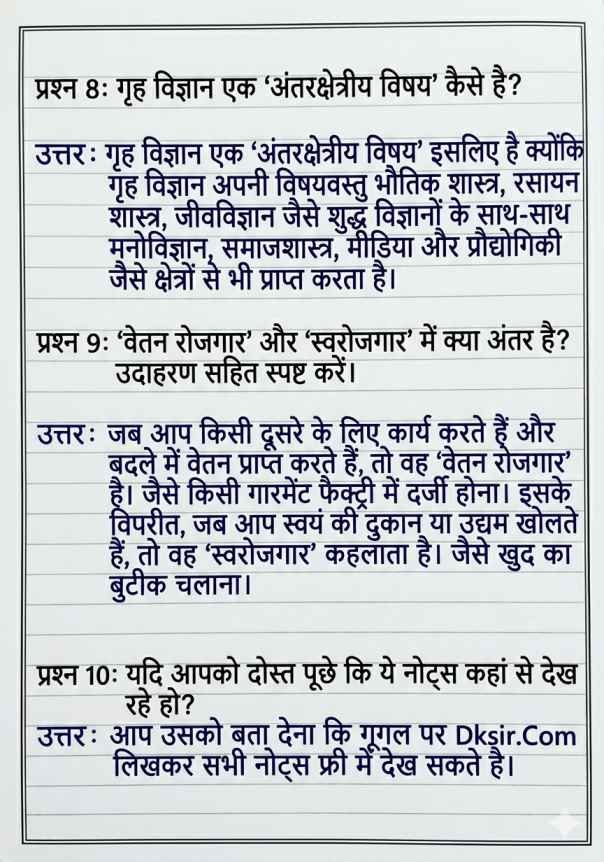 प्रश्न 8: गृह विज्ञान एक ‘अंतरक्षेत्रीय विषय’ कैसे है?
उत्तर : गृह विज्ञान एक ‘अंतरक्षेत्रीय विषय’ इसलिए है क्योंकि
गृह विज्ञान अपनी विषयवस्तु भौतिक शास्त्र, रसायन
शास्त्र, जीवविज्ञान जैसे शुद्ध विज्ञानों के साथ-साथ
मनोविज्ञान, समाजशास्त्र, मीडिया और प्रौद्योगिकी
जैसे क्षेत्रों से भी प्राप्त करता है।
प्रश्न 9: ‘वेतन रोजगार’ और ‘स्वरोजगार’ में क्या अंतर है?
उदाहरण सहित स्पष्ट करें।
उत्तर : जब आप किसी दूसरे के लिए कार्य करते हैं और
बदले में वेतन प्राप्त करते हैं, तो वह ‘वेतन रोजगार’
है। जैसे किसी गारमेंट फैक्ट्री में दर्जी होना। इसके
विपरीत, जब आप स्वयं की दुकान या उद्यम खोलते
हैं, तो वह ‘स्वरोजगार’ कहलाता है। जैसे खुद का
बुटीक चलाना।
प्रश्न 10: यदि आपको दोस्त पूछे कि ये नोट्स कहां से देख
रहे हो?
उत्तर : आप उसको बता देना कि गूगल पर Dksir.Com
लिखकर सभी नोट्स फ्री में देख सकते है।